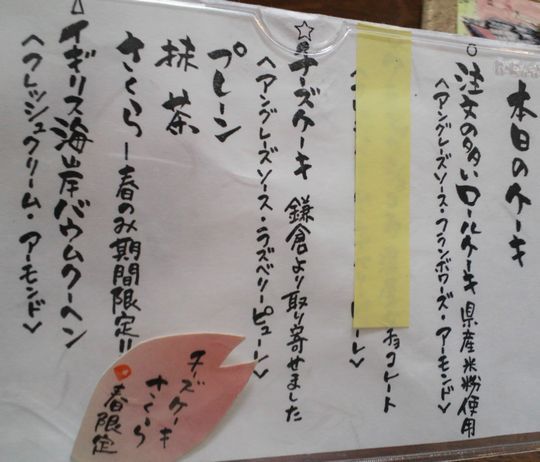 本日のケーキ
○注文の多いロールケーキ 県産米粉使用
〈アングレーズソース・フランボワーズ・アーモンド〉
チョコレート
レ〉
☆チーズケーキ 鎌倉より取り寄せました
〈アングレーズソース・ラズベリーピューレ〉
プレーン
抹茶
さくら ー春のみ期間限定!!
△イギリス海岸バウムクーヘン
〈フレッシュクリーム・アーモンド〉
チーズケーキ
さくら
春限定